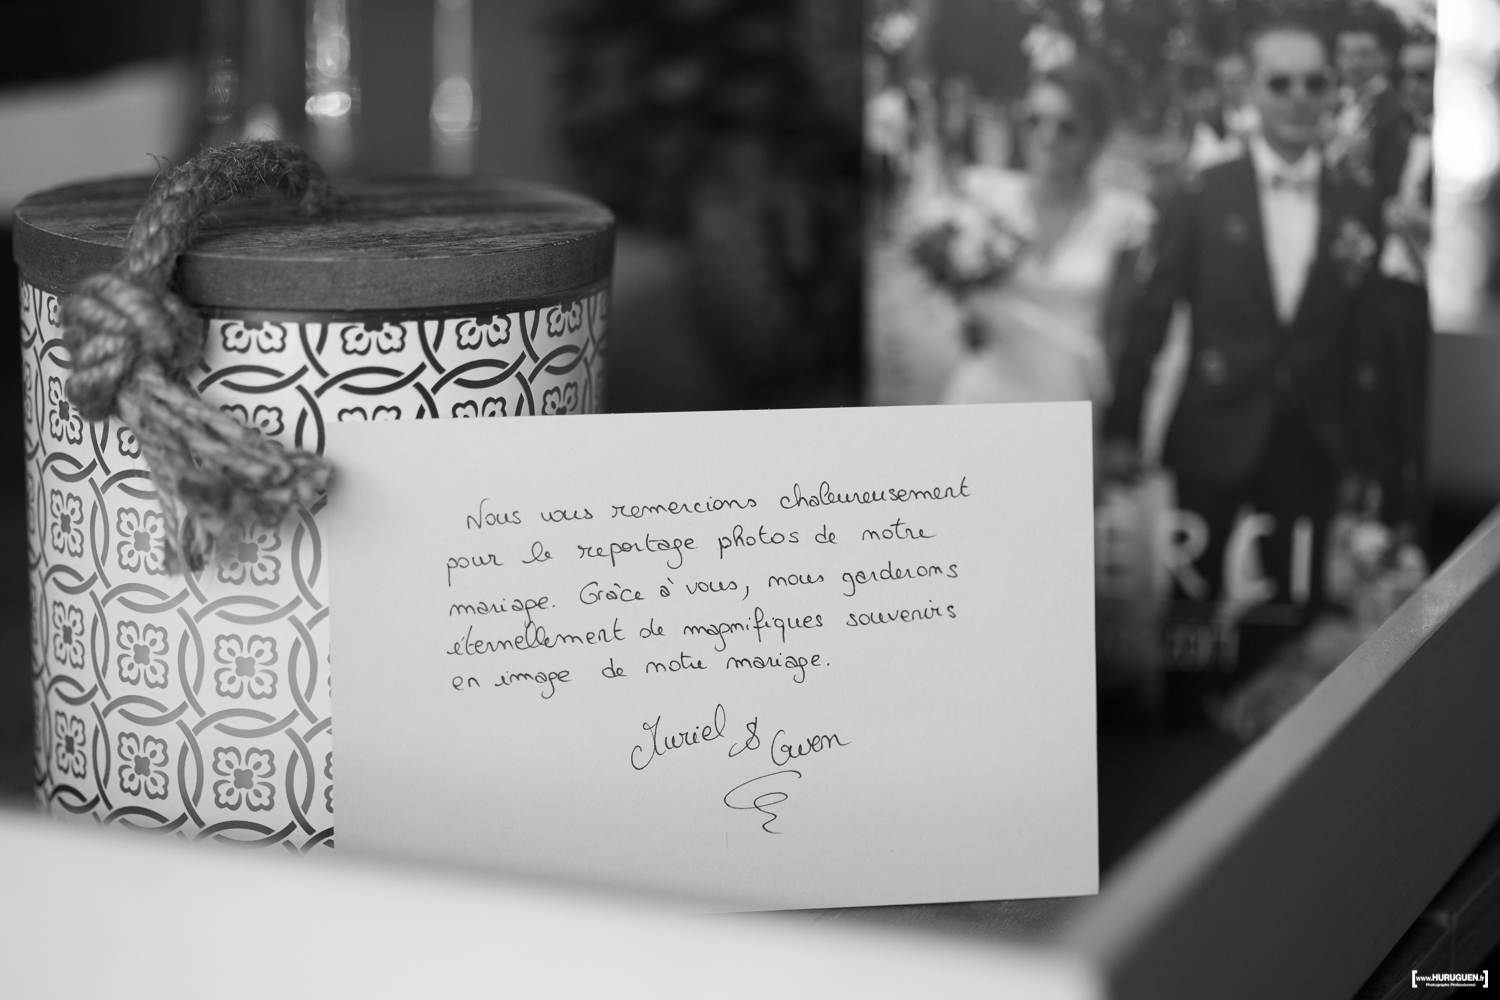 Nous vous remercions chaleureusement
pour le reportage photos de notre
mariage. Grâce à vous, nous garderons
éternellement de magnifiques souvenirs
en image de notre mariage.
Muriel & Gwen
ERCI
www.HURUGUEN.fr
Photographe Professionnel